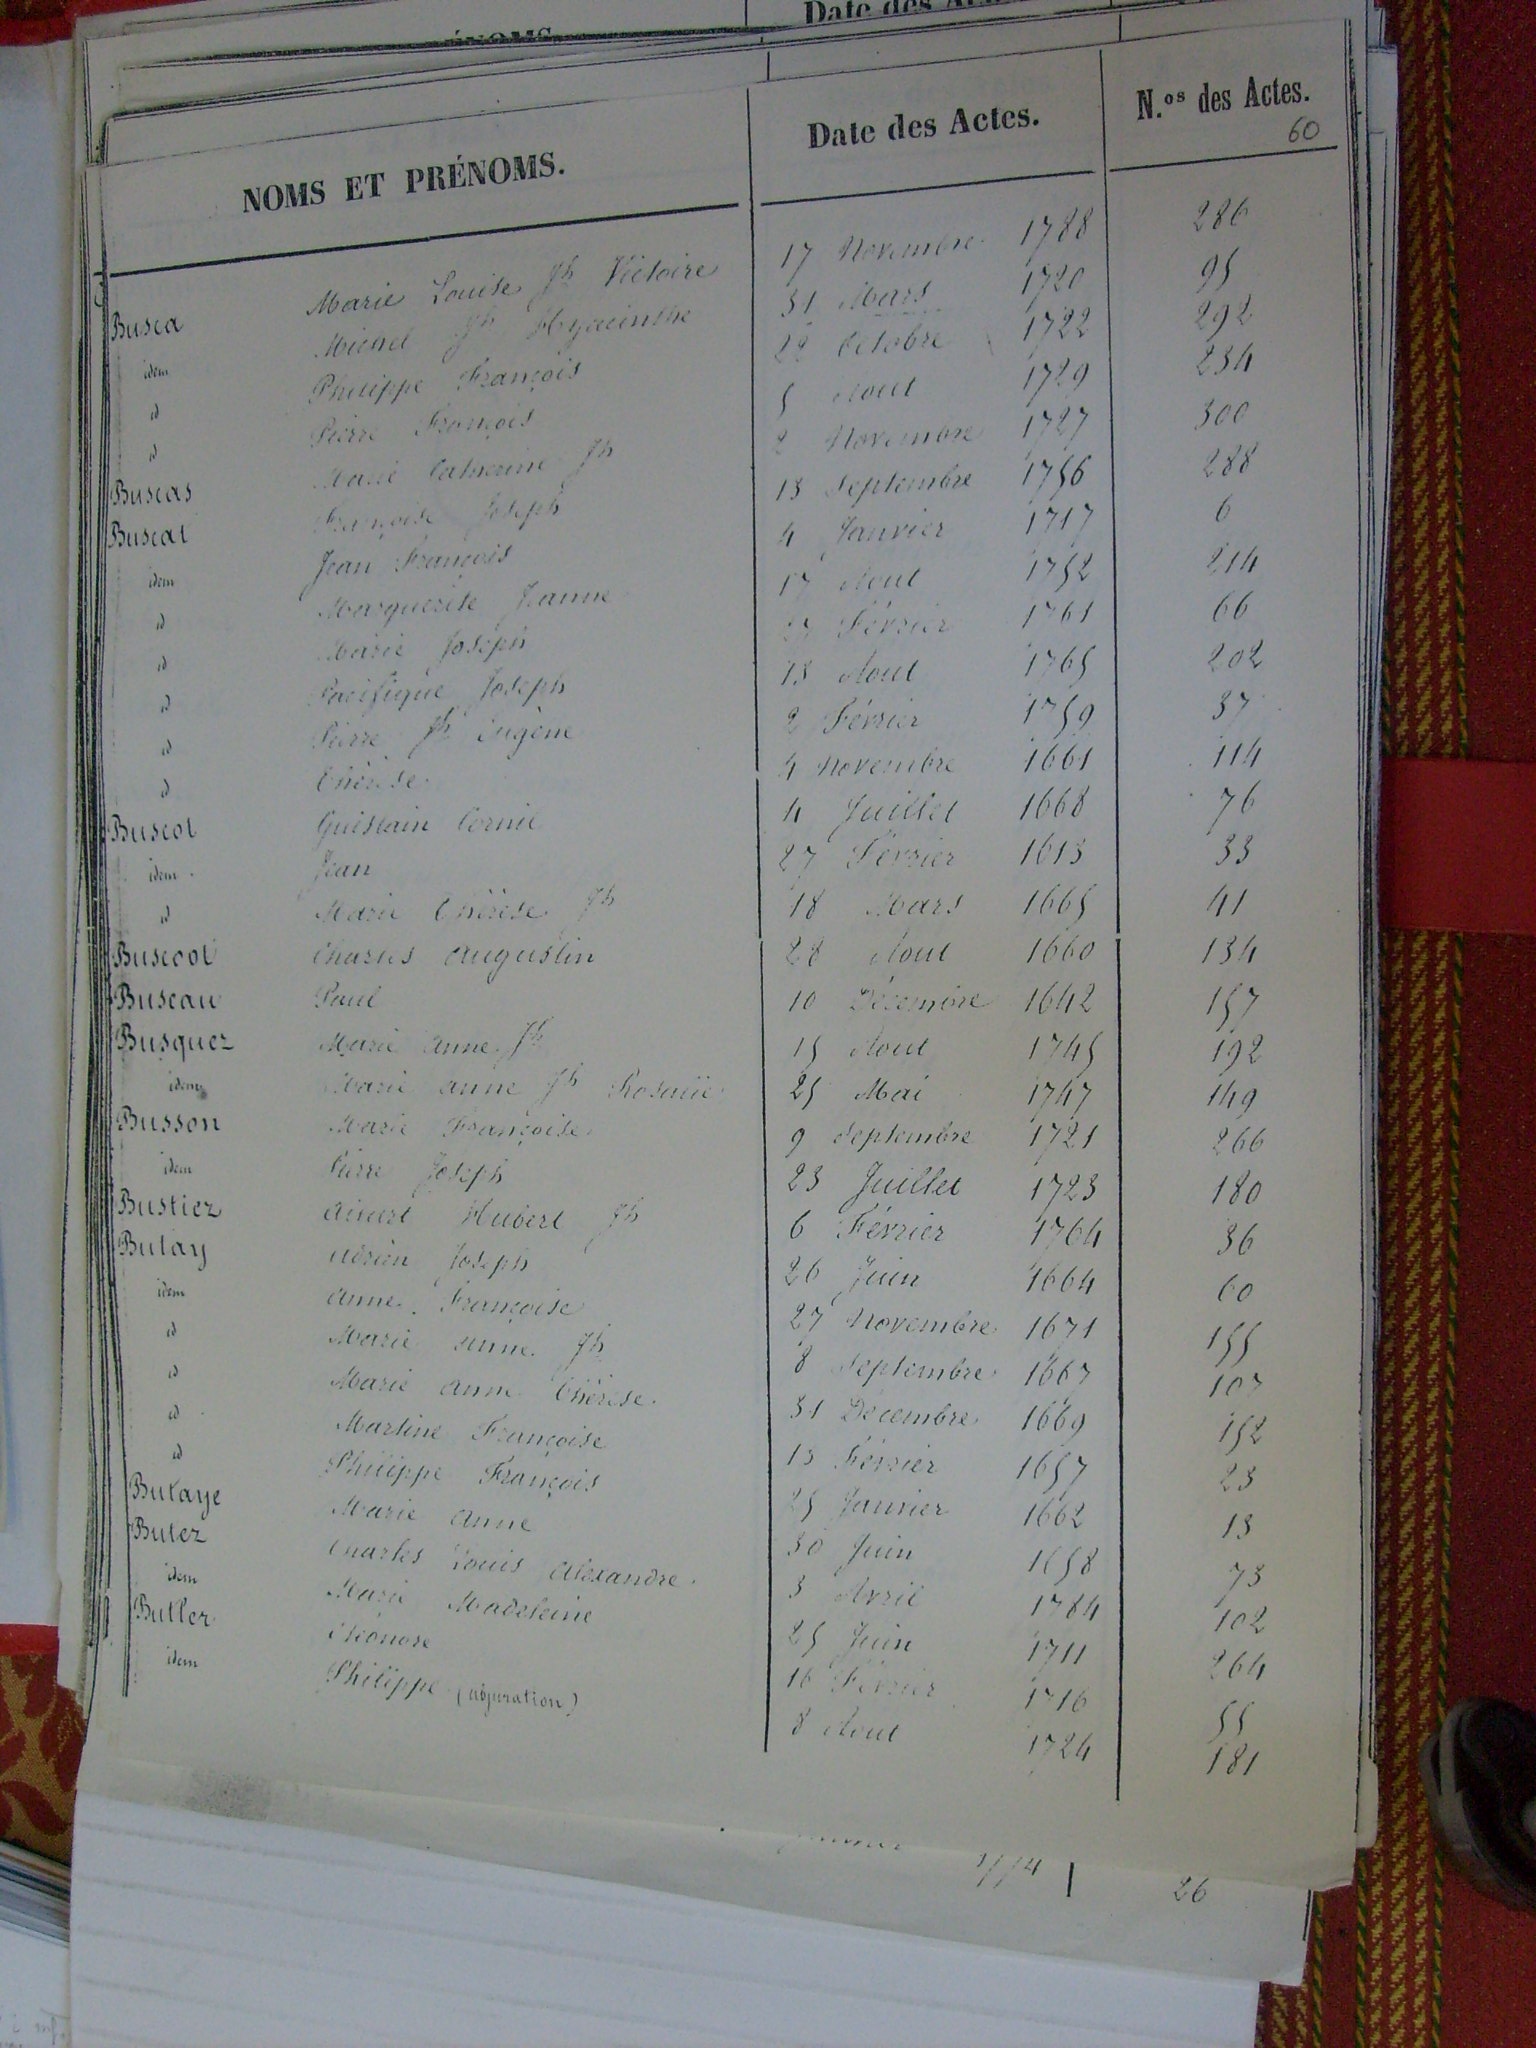 Date des Actes
NOMS ET PRÉNOMS. Date des Actes. N.os des Actes.
60
Busca Marie Louise Jh Victoire 17 Novembre 1788 286
idem Michel Jh Hyacinthe 31 Mars 1720 95
id Philippe François 22 Octobre 1722 292
id Pierre François 5 Aout 1729 234
Buscas Marie Catherine Jh 2 Novembre 1727 300
Buscat Françoise Joseph 13 Septembre 1756 288
idem Jean François 4 Janvier 1717 6
id Marguerite Jeanne 17 Aout 1752 214
id Marie Joseph 27 Février 1761 66
id Pacifique Joseph 13 Aout 1765 202
id Pierre Jh Eugène 2 Février 1759 37
id Thérèse 4 Novembre 1661 114
Buscot Guislain Cornil 4 Juillet 1668 76
idem Jean 27 Février 1613 33
id Marie Thérèse Jh 18 Mars 1665 41
Buscoot Charles Augustin 28 Aout 1660 134
Buseau Paul 10 Décembre 1642 157
Busquez Marie Anne Jh 15 Aout 1745 192
idem Marie Anne Jh Rosalie 25 Mai 1747 149
Busson Marie Françoise 9 Septembre 1721 266
idem Pierre Joseph 23 Juillet 1723 180
Bustiez Hubert Jh 6 Février 1764 36
Butay Adrien Joseph 26 Juin 1664 60
idem Anne Françoise 27 Novembre 1671 155
id Marie Anne Jh 8 Septembre 1667 107
id Marie Anne Thérèse 31 Décembre 1669 152
id Martine Françoise 13 Février 1657 23
id Philippe François 25 Janvier 1662 13
Butaye Marie Anne 30 Juin 1658 73
Butez Charles Louis Alexandre 3 Avril 1784 102
idem Marie Madeleine 25 Juin 1711 264
Butler Eléonore 16 Février 1716 55
idem Philippe (abjuration) 8 Aout 1724 181
1774 26